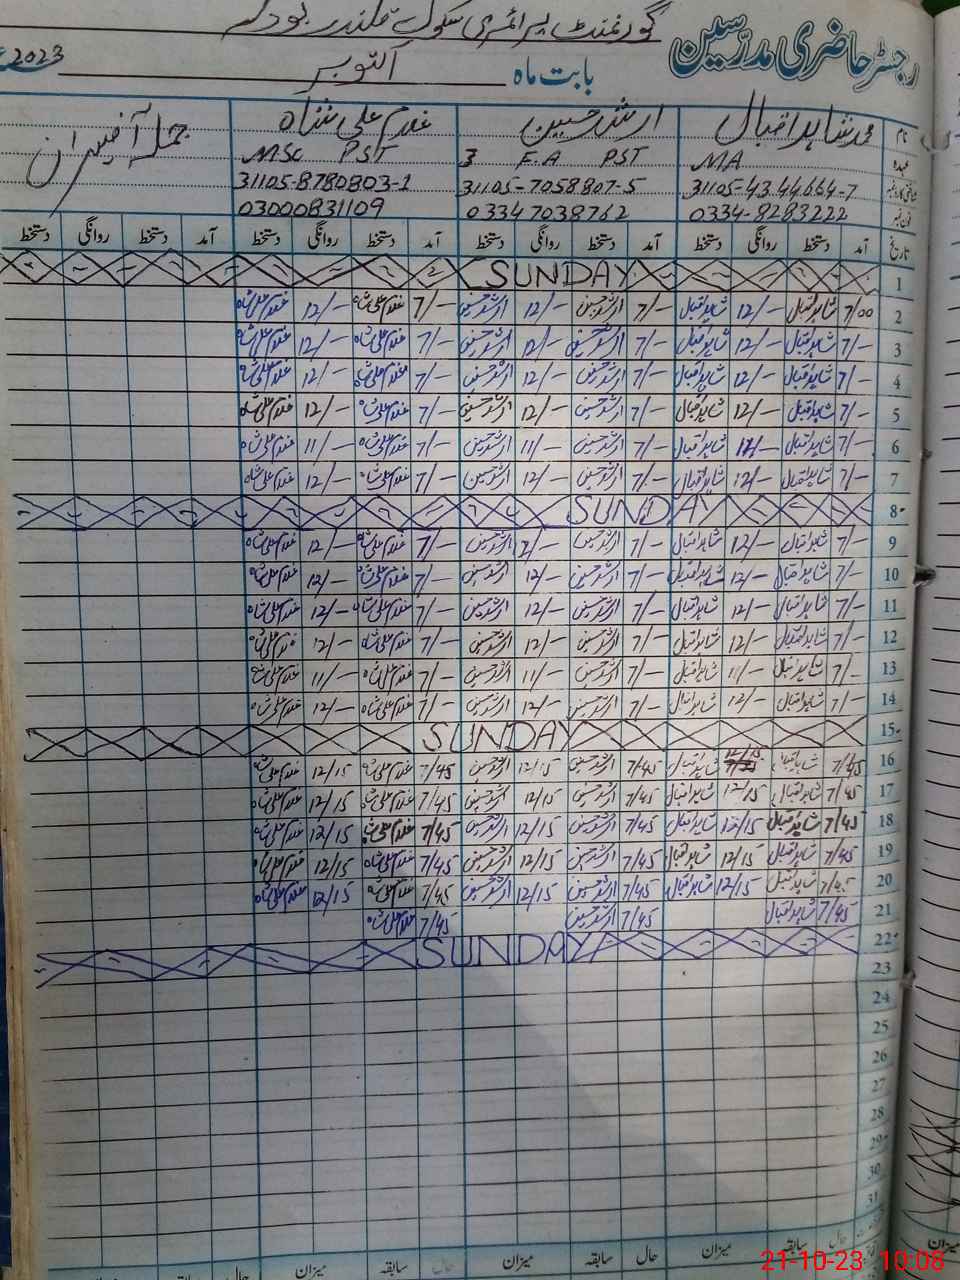 گورنمنٹ پرائمری سکول قلندر بودلہ
رجسٹر حاضری مدرسین
بابت ماہ اکتوبر 2023
نام محمد شاہد اقبال ارشد حسین غلام علی شاہ جملہ آفیسران
عہدہ MA 3 F.A PST MSc PST
31105-4344664-7 31105-7058807-5 31105-8780803-1
فون نمبر 0334-8283222 03347038762 03000831109
تاریخ آمد دستخط روانگی دستخط آمد دستخط روانگی دستخط آمد دستخط روانگی دستخط آمد دستخط روانگی دستخط
1 SUNDAY
2 7/00 شاہد اقبال 12/- شاہد اقبال 7/- ارشد حسین 12/- ارشد حسین 7/- غلام علی شاہ 12/- غلام علی شاہ
3 7/- شاہد اقبال 12/- شاہد اقبال 7/- ارشد حسین 12/- ارشد حسین 7/- غلام علی شاہ 12/- غلام علی شاہ
4 7/- شاہد اقبال 12/- شاہد اقبال 7/- ارشد حسین 12/- ارشد حسین 7/- غلام علی شاہ 12/- غلام علی شاہ
5 7/- شاہد اقبال 12/- شاہد اقبال 7/- ارشد حسین 12/- ارشد حسین 7/- غلام علی شاہ 12/- غلام علی شاہ
6 7/- شاہد اقبال 11/- شاہد اقبال 7/- ارشد حسین 11/- ارشد حسین 7/- غلام علی شاہ 11/- غلام علی شاہ
7 7/- شاہد اقبال 12/- شاہد اقبال 7/- ارشد حسین 12/- ارشد حسین 7/- غلام علی شاہ 12/- غلام علی شاہ
8 SUNDAY
9 7/- شاہد اقبال 12/- شاہد اقبال 7/- ارشد حسین 12/- ارشد حسین 7/- غلام علی شاہ 12/- غلام علی شاہ
10 7/- شاہد اقبال 12/- شاہد اقبال 7/- ارشد حسین 12/- ارشد حسین 7/- غلام علی شاہ 12/- غلام علی شاہ
11 7/- شاہد اقبال 12/- شاہد اقبال 7/- ارشد حسین 12/- ارشد حسین 7/- غلام علی شاہ 12/- غلام علی شاہ
12 7/- شاہد اقبال 12/- شاہد اقبال 7/- ارشد حسین 12/- ارشد حسین 7/- غلام علی شاہ 12/- غلام علی شاہ
13 7/- شاہد اقبال 11/- شاہد اقبال 7/- ارشد حسین 11/- ارشد حسین 7/- غلام علی شاہ 11/- غلام علی شاہ
14 7/- شاہد اقبال 12/- شاہد اقبال 7/- ارشد حسین 12/- ارشد حسین 7/- غلام علی شاہ 12/- غلام علی شاہ
15 SUNDAY
16 7/45 شاہد اقبال 12/15 شاہد اقبال 7/45 ارشد حسین 12/15 ارشد حسین 7/45 غلام علی شاہ 12/15 غلام علی شاہ
17 7/45 شاہد اقبال 12/15 شاہد اقبال 7/45 ارشد حسین 12/15 ارشد حسین 7/45 غلام علی شاہ 12/15 غلام علی شاہ
18 7/45 شاہد اقبال 12/15 شاہد اقبال 7/45 ارشد حسین 12/15 ارشد حسین 7/45 غلام علی شاہ 12/15 غلام علی شاہ
19 7/45 شاہد اقبال 12/15 شاہد اقبال 7/45 ارشد حسین 12/15 ارشد حسین 7/45 غلام علی شاہ 12/15 غلام علی شاہ
20 7/45 شاہد اقبال 12/15 شاہد اقبال 7/45 ارشد حسین 12/15 ارشد حسین 7/45 غلام علی شاہ 12/15 غلام علی شاہ
21 7/45 شاہد اقبال 7/45 ارشد حسین 7/45 غلام علی شاہ
22 SUNDAY
23
24
25
26
27
28
29
30
31
حال سابقہ میزان حال سابقہ میزان حال سابقہ میزان حال سابقہ
میزان
21-10-23 10:08